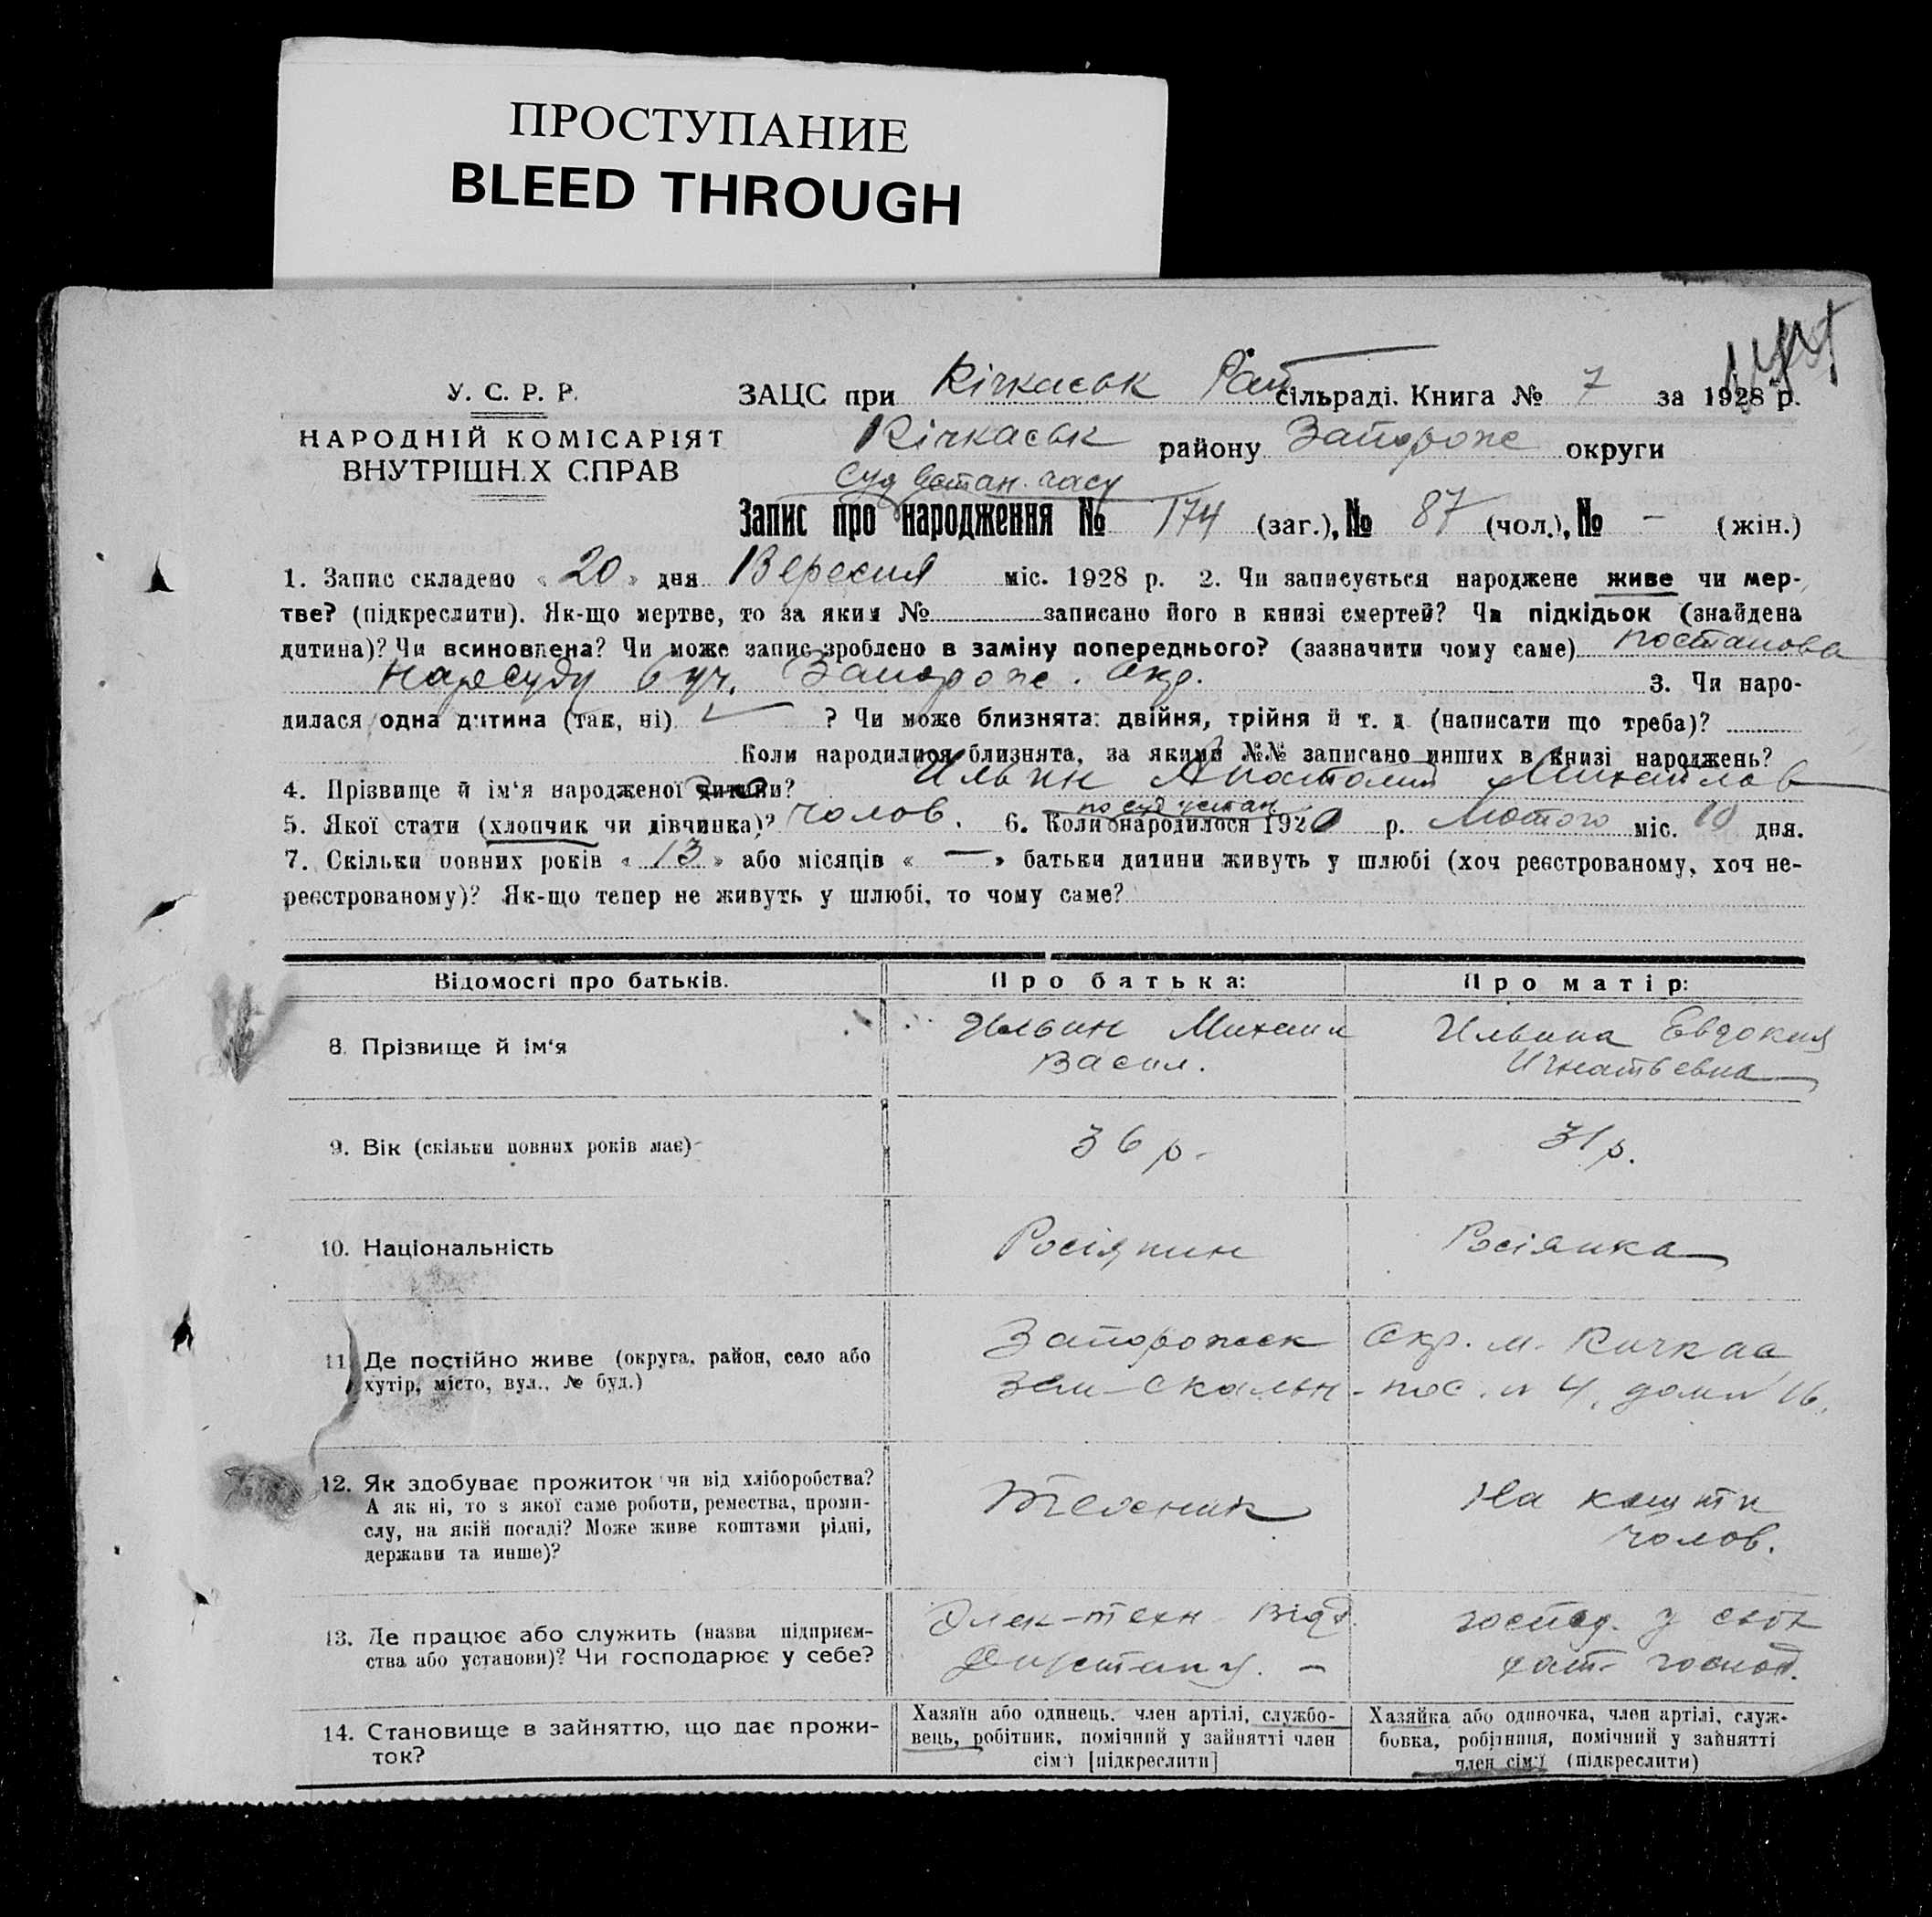 ПРОСТУПАНИЕ
BLEED THROUGH
У. С. Р. Р.
НАРОДНІЙ КОМІСАРІЯТ
ВНУТРІШН.Х СПРАВ
ЗАЦС при Кічкаськ Рай сільраді. Книга № 7 за 1928 р.
Кічкаськ району Запорож округи
Суд встан. часу
Запис про народження № 174 (заг.), № 87 (чол.), № – (жін.)
1. Запис складено « 20 » дня Вересня міс. 1928 р. 2. Чи записується народжене живе чи мер-
тве? (підкреслити). Як-що мертве, то за яким № записано його в книзі смертей? Чи підкідьок (знайдена
дитина)? Чи всиновлена? Чи може запис зроблено в заміну попереднього? (зазначити чому саме) постанова
Нарсуду 6 уч. Запорож. Окр. 3. Чи наро-
дилася одна дитина (так, ні) ? Чи може близнята: двійня, трійня й т. д (написати що треба)?
Коли народилися близнята, за якими №№ записано инших в книзі народжень?
4. Прізвище й ім'я народженої дитини? Ильин Анатолий Михайлов
5. Якої стати (хлопчик чи дівчинка)? чолов. 6. Коли народилося 1920 р. Лютого міс. 10 дня.
по суд устан
7. Скільки повних років « 13 » або місяців « — » батьки дитини живуть у шлюбі (хоч реєстрованому, хоч не-
реєстрованому)? Як-що тепер не живуть у шлюбі, то чому саме?
Відомості про батьків. Про батька: Про матір:
8. Прізвище й ім'я
Ильин Михаил
Васил.
Ильина Евдокия
Игнатьевна
9. Вік (скільки повних років має)
36 р.
31 р.
10. Національність
Росіянин
Росіянка
11. Де постійно живе (округа, район, село або
хутір, місто, вул., № буд.)
Запорожск Окр. м. Кичкас
скальн - пос. № 4, дом № 16.
12. Як здобуває прожиток чи від хліборобства?
А як ні, то з якої саме роботи, ремества, проми-
слу, на якій посаді? Може живе коштами рідні,
держави та инше)?
На кошти
чолов.
13. Де працює або служить (назва підприєм-
ства або установи)? Чи господарює у себе?
Элек-техн відд.
господ. у своъ
14. Становище в зайняттю, що дає прожи-
ток?
Хазяїн або одинець, член артілі, службо-
вець, робітник, помічний у зайнятті член
сім'ї [підкреслити]
Хазяйка або одиночка, член артілі, служ-
бовка, робітниця, помічний у зайнятті
член сім'ї (підкреслити)